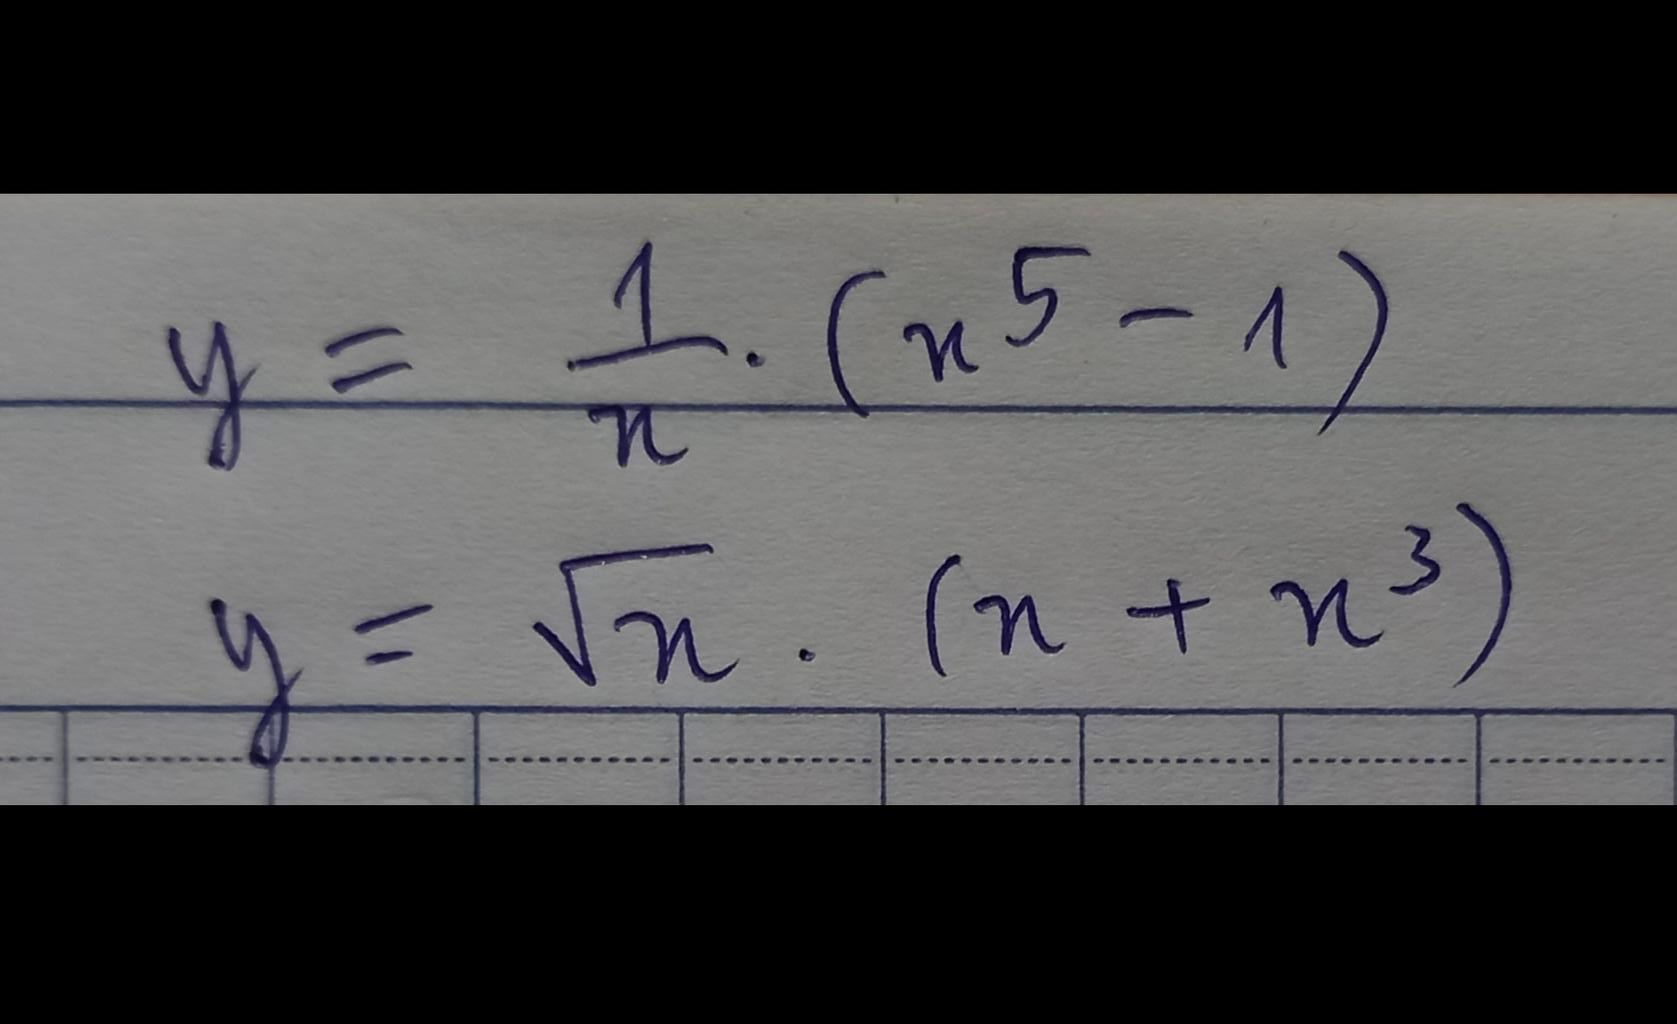 y = 1/x . (x⁵ - 1)
y = √x . (x + x³)